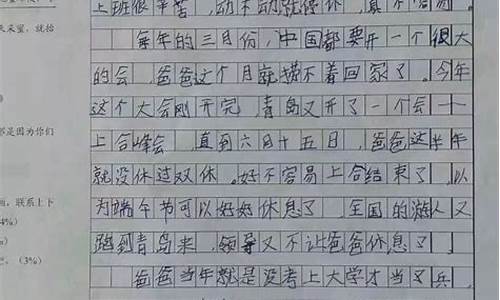 上班很辛苦，动不动就停休，真不容易。
每年的三月份，中国都要开一个很大
的会，爸爸这个月就摸不着回家了。今年
这个大会刚开完，青岛又开了一个会——
上合峰会，直到六月十五日，爸爸这半年
就没休过双休。好不容易上合结束了，以
为端午节可以好好休息了，全国的游人又
跑到青岛来，领导又不让爸爸休息了。
爸爸当年就是没考上大学才当了兵，
是因为你们
联系上下
4%)
(3%)